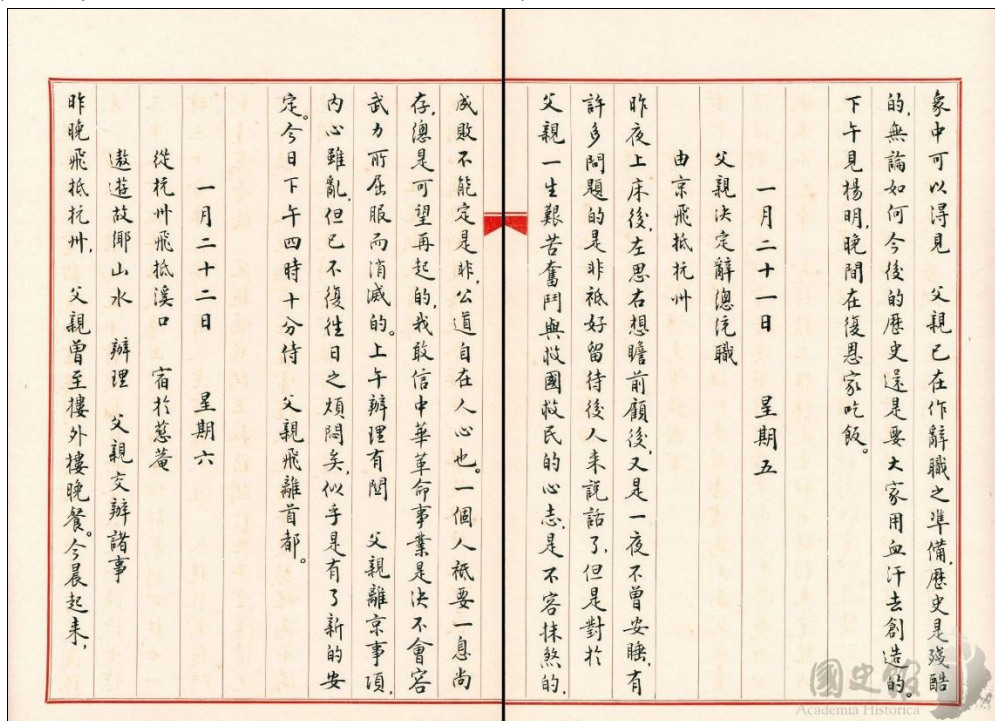 象中可以得見　父親已在作辭職之準備，歷史是殘酷
的，無論如何今後的歷史還是要大家用血汗去創造的。
下午見楊明，晚間在復恩家吃飯。
一月二十一日　星期五
父親決定辭總統職
由京飛抵杭州
昨夜上床後，左思右想瞻前顧後，又是一夜不曾安睡，有
許多問題的是非祇好留待後人來說話了，但是對於
父親一生艱苦奮鬥與救國救民的心志，是不容抹煞的，
成敗不能定是非，公道自在人心也。一個人祇要一息尚
存，總是可望再起的，我敢信中華革命事業是決不會容
武力所屈服而消滅的。上午辦理有關　父親離京事項，
內心雖亂，但已不復往日之煩悶矣，似乎是有了新的安
定。今日下午四時十分侍　父親飛離首都。
一月二十二日　星期六
從杭州飛抵溪口　宿於慈菴
遨遊故鄉山水　辦理　父親交辦諸事
昨晚飛抵杭州，　父親曾至樓外樓晚餐。今晨起來，
國史館
Academia Historica